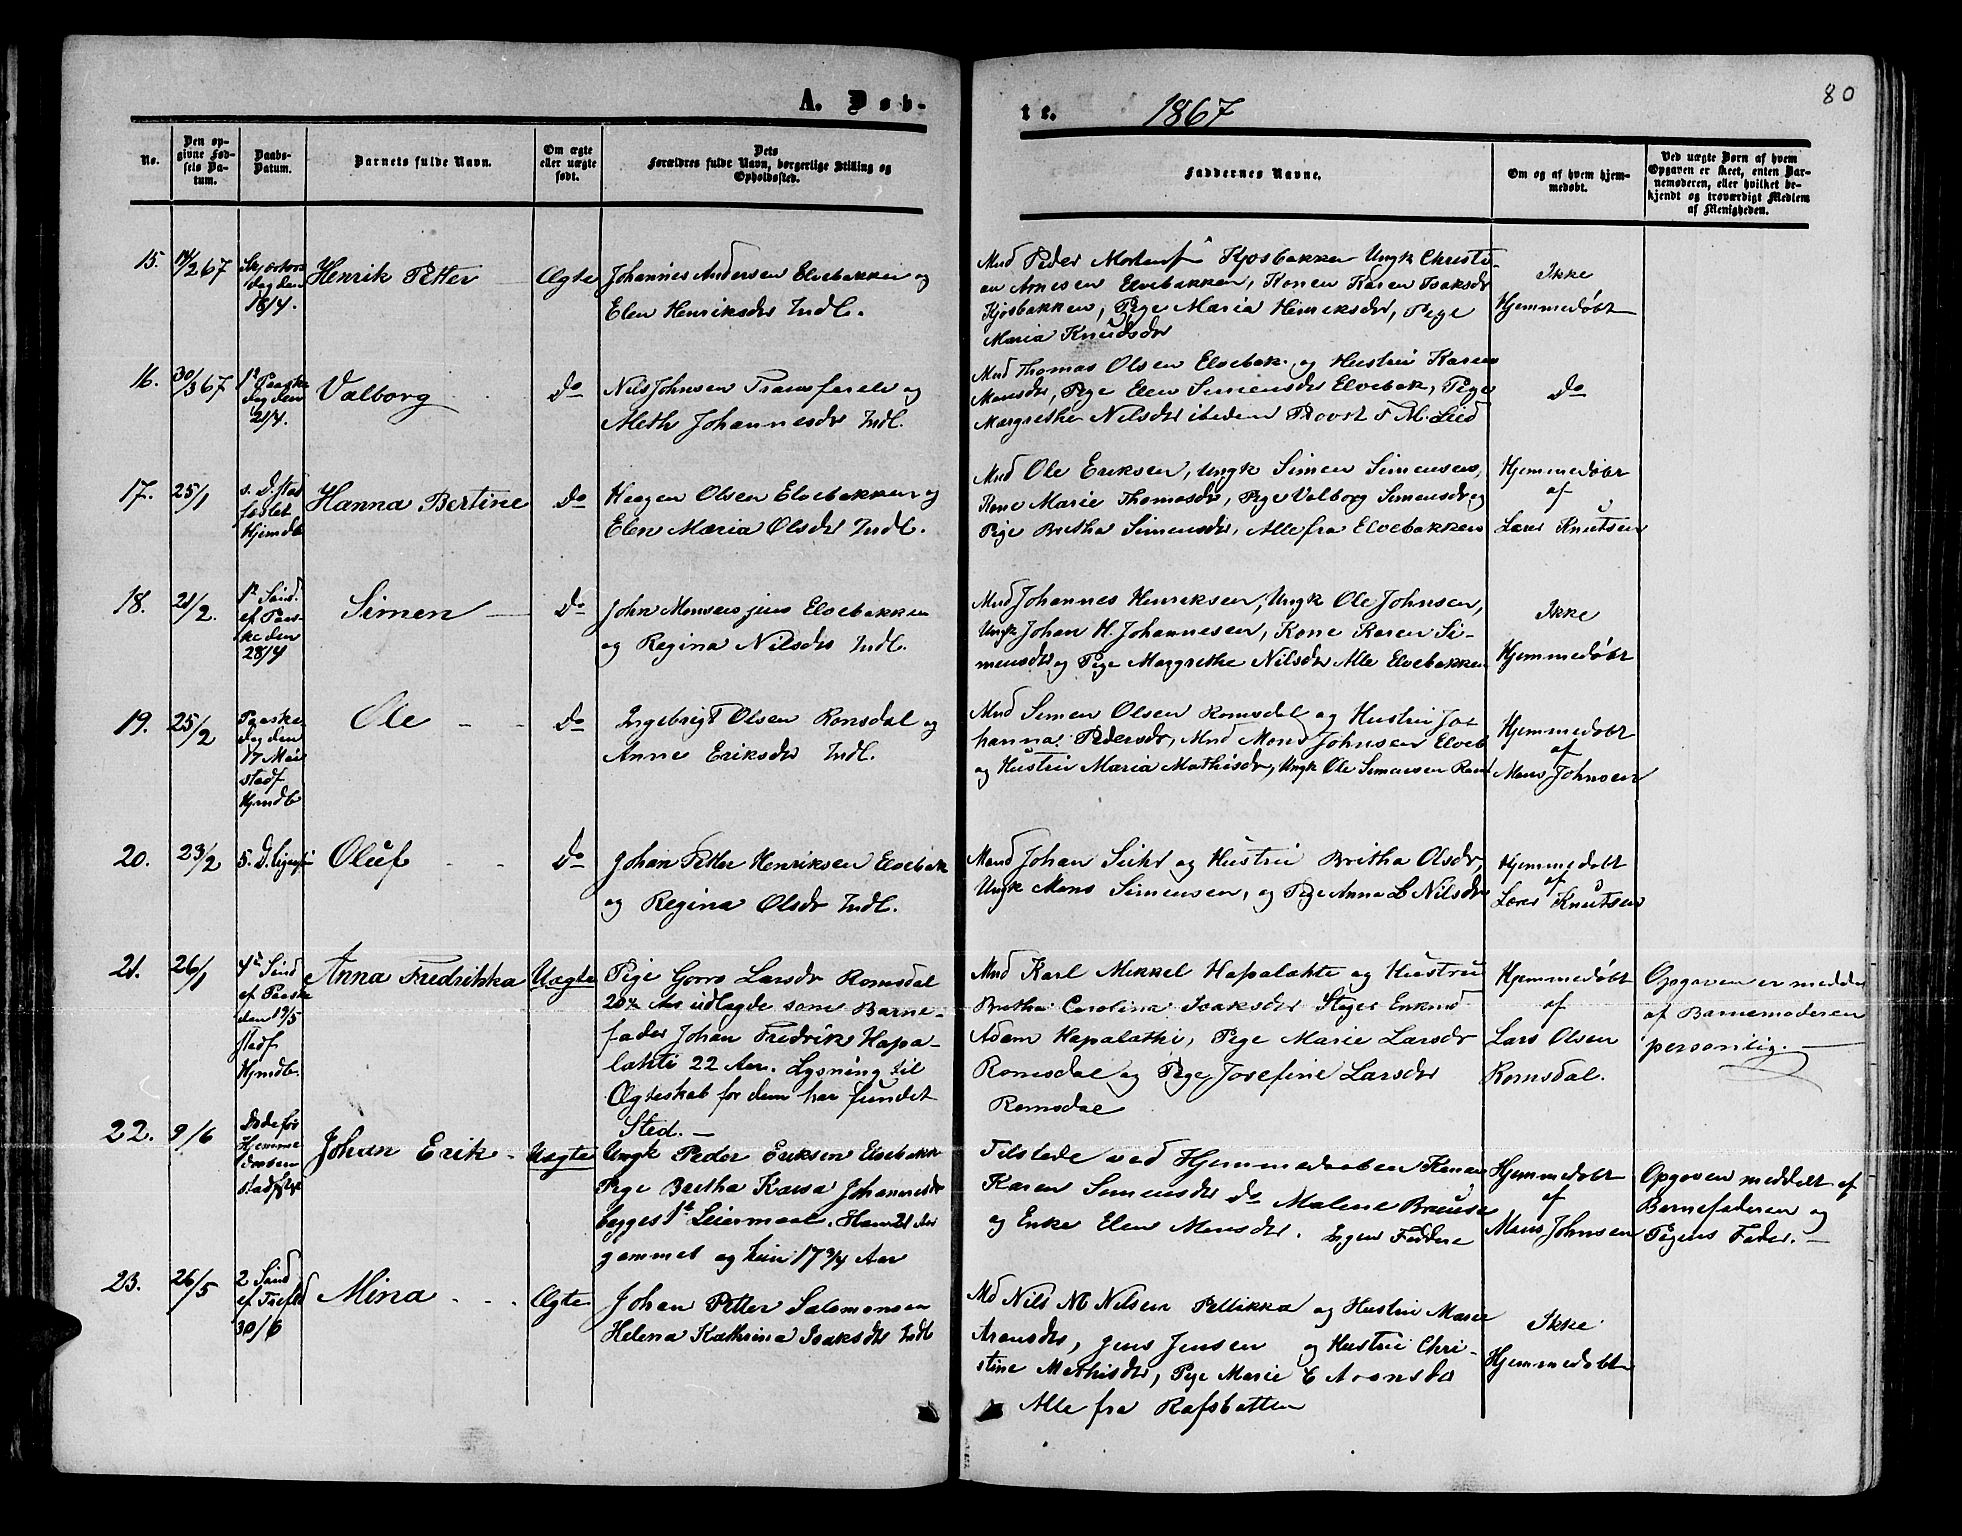 80
A. Døb-
te.
1867
No.
Den op-
givne Fød-
sels Da-
tum.
Daabs-
Datum.
Barnets fulde Navn.
Om ægte
eller uægte
født.
Dets
Forældres fulde Navn, borgerlige Stilling og
Opholdssted.
Faddernes Navne.
Om og af hvem hjem-
medøbt.
Ved uægte Børn af hvem
Opgaven er skeet, enten Bar-
nemoderen, eller hvilket be-
kjendt og troværdigt Medlem
af Menigheden.
15.
14/2 67
dag den
18/4.
Henrik Petter
Ægte
Johannes Andersen Elvebakken og
Elen Henriksdr Indl.
Mnd Peder Mortensen Kjosbakken Ungk Christi-
an Arnesen Elvebakken, Konen Karen Isaksdr
Kjosbakken, Pige Maria Henriksdr, Pige
Maria Knudsdr
Ikke
Hjemmedøbt
16.
30/3 67
1ste Paaske
dag den
21/4.
Valborg
Do
Nils Johnsen Transfarelv og
Meth Johannesdr Indl.
Mnd Thomas Olsen Elvebak. og Hustru Karen
Monsdr, Pige Elen Simensdr Elvebak, Pige
Margrethe Nilsdr ibeden Provst
Do
17.
25/1
s. D. stad
fæstet
Hjemdb
Hanna Bertine
Do
Haagen Olsen Elvebakken og
Elen Maria Olsdr Indl.
Mnd Ole Eriksen, Ungk Simen Simensen,
Kone Marie Thomasdr, Pige Valborg Simensdr og
Pige Britha Simensdr, Alle fra Elvebakken
Hjemmedøbt
af
Lærer Knutsen
18.
21/2.
1ste Sønd.
ef Paas-
ke den
28/4
Simen
Do
John Monsen jun Elvebakken
og Regina Nilsdr Indl.
Mnd Johannes Henriksen, Ungk Ole Johnsen,
Ungk Johan H. Johannesen, Kone Karen Si-
mensdr og Pige Maggrethe Nilsdr Alle Elvebakken
Ikke
Hjemmedøbt
19.
25/2
dag den
17 Mai
stadf
Hjemdb
Ole
Do
Ingebrigt Olsen Romsdal og
Anne Eriksdr Indl.
Mnd Simen Olsen Romsdal og Hustru Jo-
hanna Pedersdr, Mnd Mons Johnsen Elveb
og Hustru Maria Mathisdr, Ungk Ole Simensen Romd
Hjemmedøbt
af
Mons Johnsen
20.
23/2
s. D. ligesaa
Oluf
Do
Johan Petter Henriksen Elvebak
og Regina Olsdr Indl.
Mand Johan Suhr og Hustru Britha Olsdr,
Ungk Mons Simensen, og Pige Anna L Nilsdr
Hjemmedøbt
af
Lærer Knutsen
21.
26/1
4de Sønd
ef Paaske
den 19/5
stadf
Hjmdb.
Anna Fredrikka
Uægte
Pige Larsdr Romsdal
20 3/4 Aar udlagde som Barne-
fader Johan Fredrik Hapa-
lahti 22 Aar. Lysning til
Ægteskab for dem har fundet
Sted.
Mnd Karl Mikkel Hapalahte og Hustru
Britha Carolina Isaksdr
Adam Hapalathi, Pige Marie Larsdr
Romsdal og Pige Josefine Larsdr
Romsdal
Hjemmedøbt
af
Lars Olsen
Romsdal.
Opgaven er meddelt
af Barnemoderen
personlig.
22.
9/6
Døde før
Hjemme
daaben
stadfæst
Johan Erik
Uægte
Ungk Peder Eriksen Elvebakk
Pige Bretha Kaisa Johannesdr
begges 1ste Leiermaal. Han 21 Aar
gammel og hun 17 3/4 Aar
Tilstede ved Hjemmedaaben Konen
Karen Simensdr Do Malene
og Enke Elen Monsdr. Ingen Faddere
Hjemmedøbt
af
Mons Johnsen
Opgaven meddelt af
Barnefaderen og
Pigens Fader.
23.
26/5
2 Sønd
ef Trefld
30/6
Mina
Ægte
Johan Petter Salomonsen
Helena Kathrina Isaksdr Indl
Md Nils M Nilsen Pellikka og Hustru Marie
Aronsdr, Jens Jensen og Hustru Chri-
stine Mathisdr, Pige Marie E Aronsdr
Alle fra Rafsbotten
Ikke
Hjemmedøbt